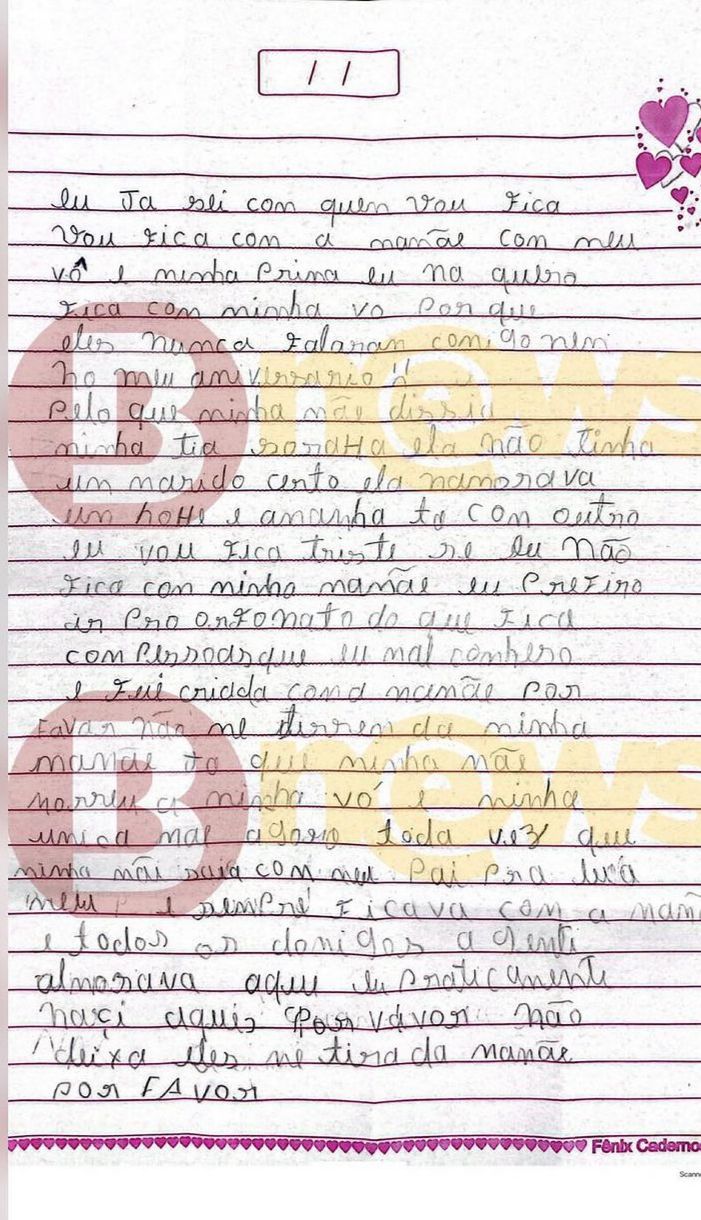 / /
eu Ja sei com quem vou fica
vou fica com a mamãe com meu
vô e minha Prima eu na quero
fica com minha vo Por que
eles nunca falaram comigo nem
no meu aniversario !!
Pelo que minha mãe dissia
minha tia ela não tinha
um marido certo ela namorava
um hoHe e amanha ta com outro
eu vou fica triste se eu não
fica com minha mamãe eu Prefiro
ir Pro orfonato do que fica
com Pessoas que eu mal conheso
e fui criada com a mamãe Por
Favor não me tirrem da minha
mamãe ja que minha mãe
morreu a minha vó e minha
unica mae agoro toda vez que
minha mãi saia com meu Pai Pra
meu e semPre ficava com a mam
e todos os domigos a genti
almosava aqui eu Praticamente
naçi aqui Por vavor não
deixa eles me tira da mamãe
POR FAVOR
Fênix Caderno
Scann
Bn@ws
Bn@ws